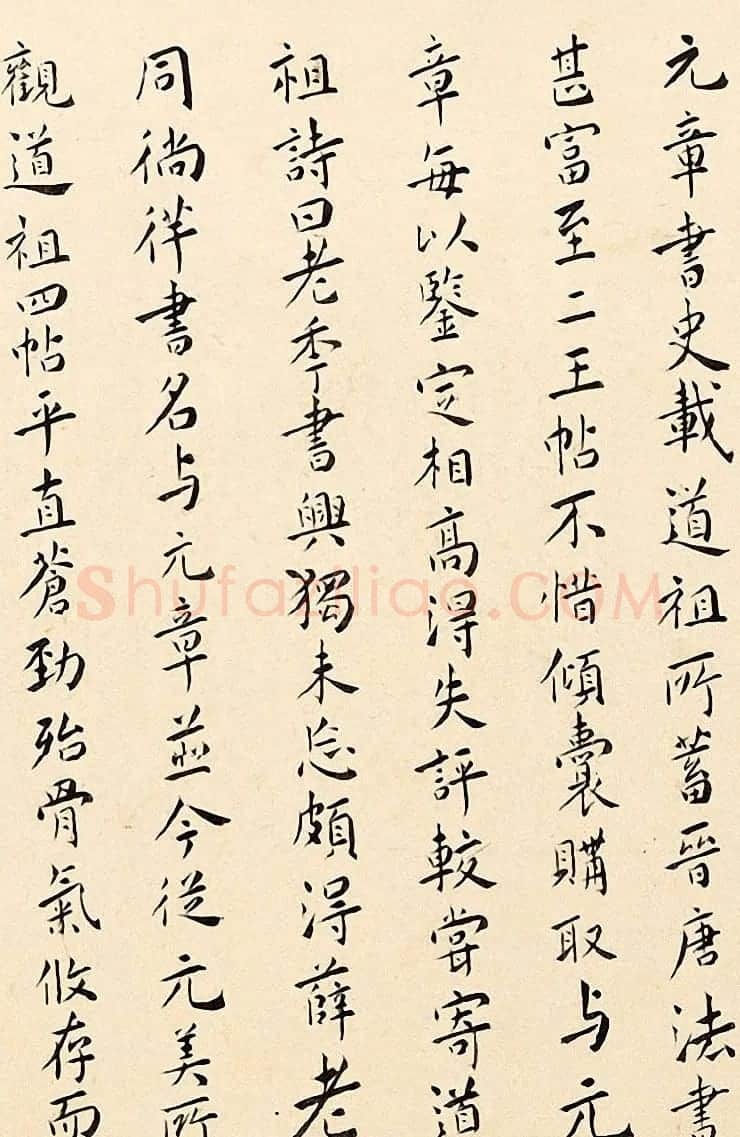 元章書史載道祖所蓄晉唐法書
甚富至二王帖不惜傾囊購取与元
章每以鑒定相高得失評較嘗寄道
祖詩曰老秊書興獨未忘頗得薛老
同徜徉書名与元章並今從元美所
觀道祖四帖平直蒼勁殆骨氣攸存而
ShufaziliaoCOM